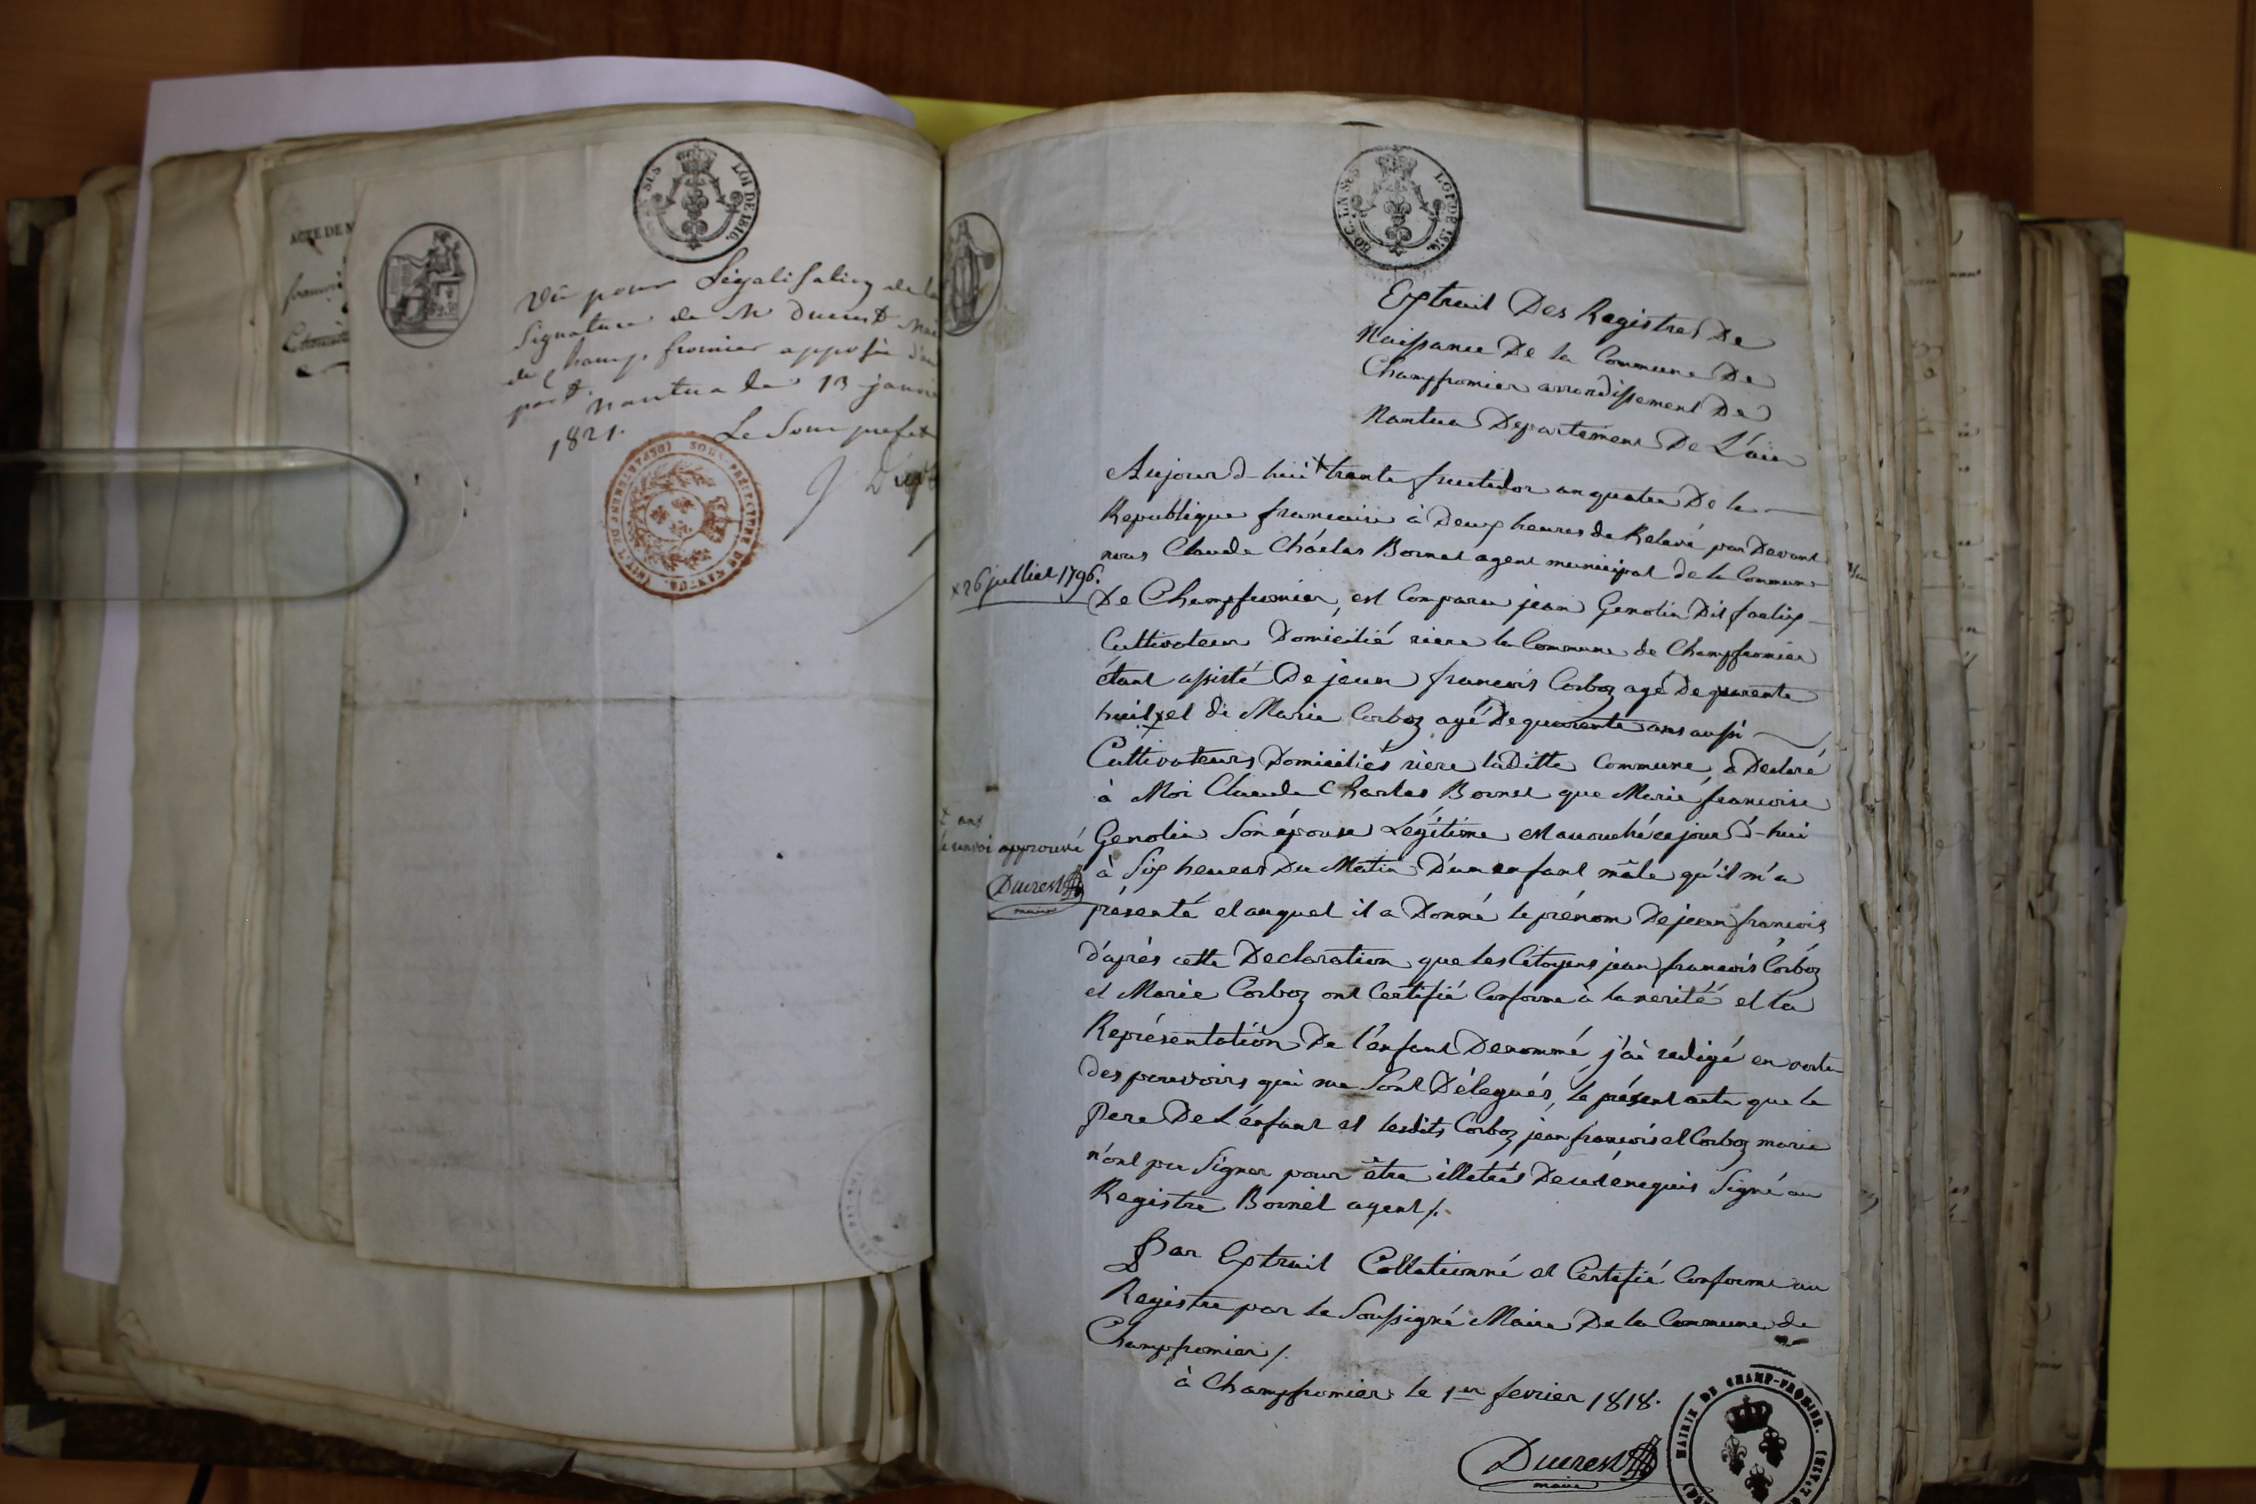 ACTE DE
LOI DE 1816.
Vû pour Légalisation de la
Signature de Mr Ducrest
de Champfromier apposée d'au
part. Nantua le 13 janvi
1821. Le Sous prefet
SOUS-PRÉFECTURE DE NANTUA
LOI DE 1816.
Extrait Des Registres De
Naissance De la Commune De
Champfromier arrondissement De
Nantua Departement De L'ain
Aujourd-hui + trente fructidor an quatre De la
Republique francaise à Deux heures de Relevé par Devant
nous Claude Charles Bornet agent municipal de la Commune
x 26 juillet 1796.
De Champfromier, est Comparu jean Genolin Dit
Cultivateur Domicilié riere la Commune de Champfromier
étant assisté De jean francois Corboz agé De quarente
huit x et de Marie Corboz agé De quarente ans aussi
Cultivateurs Domiciliés riere laditte Commune, a Declaré
à Moi Claude Charles Bornet que Marie francoise
x ans
le renvoi approuvé
Ducrest
maire
Genolin Son épouse Légitime est accouchée ce jour d-hui
à Six heures Du Matin D'un enfant mâle qu'il m'a
présenté et auquel il a Donné le prénom De jean francois
d'après cette Declaration que les Citoyens jean francois Corboz
et Marie Corboz ont Certifié Conforme à la verité et la
Représentation De l'enfant Denommé, j'ai redigé en vertu
des pouvoirs qui me Sont Délegués, le présent acte que le
Pere De L'enfant et lesdits Corboz jean francois et Corboz marie
n'ont pu Signer pour être illetrés De ce enquis Signé au
Registre Bornet agent /.
Par Extrait Collationné et Certifié Conforme au
Registre par le Soussigné Maire De la Commune de
Champfromier /.
à Champfromier le 1er fevrier 1818.
Ducrest
maire
MAIRIE DE CHAMP-FROMIER.